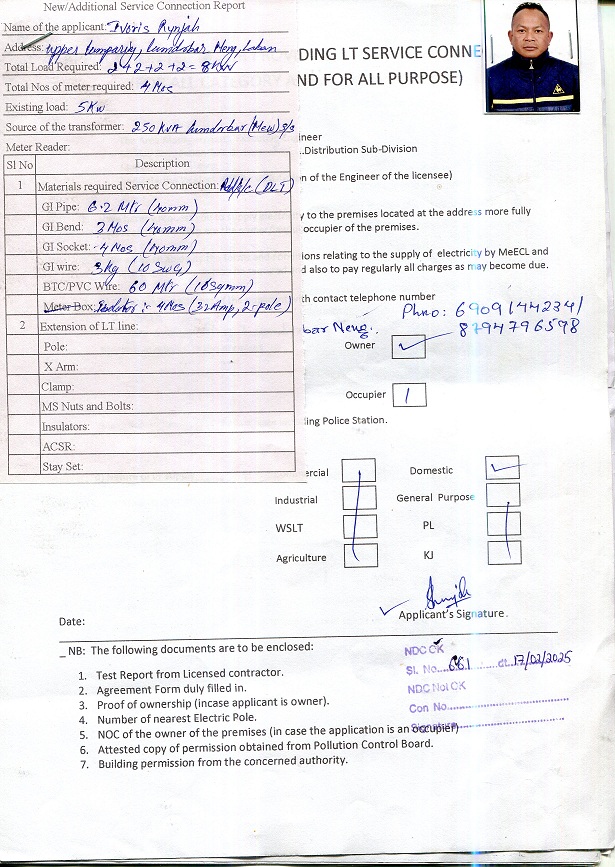 New/Additional Service Connection Report
Name of the applicant: Ivoris Rynjah
Address: Upper Lumparing, Lumdorbar Neng, Laban
Total Load Required: 2+2+2+2 = 8KW
Total Nos of meter required: 4 Nos
Existing load: 5KW
Source of the transformer: 250 KVA Lumdorbar (New) S/S
Meter Reader:
Sl No Description
1 Materials required Service Connection: (DLT)
GI Pipe: 6.2 Mtr (40mm)
GI Bend: 3 Nos (40mm)
GI Socket: 4 Nos (40mm)
GI wire: 3Kg (10 SWG)
BTC/PVC Wire: 60 Mtr (16sqmm)
Meter Box: Isolator :- 4 Nos (32Amp, 2-pole)
2 Extension of LT line:
Pole:
X Arm:
Clamp:
MS Nuts and Bolts:
Insulators:
ACSR:
Stay Set:
DING LT SERVICE CONNE
ND FOR ALL PURPOSE)
ineer
..Distribution Sub-Division
n of the Engineer of the licensee)
y to the premises located at the address more fully
occupier of the premises.
ions relating to the supply of electricity by MeECL and
d also to pay regularly all charges as may become due.
th contact telephone number
Ph no: 6909144234/
8794796598
bar Neng.
Owner
Occupier 1
ing Police Station.
ercial Domestic
Industrial General Purpose
WSLT PL
Agriculture KJ
Applicant's Signature.
Date:
_ NB: The following documents are to be enclosed:
1. Test Report from Licensed contractor.
2. Agreement Form duly filled in.
3. Proof of ownership (incase applicant is owner).
4. Number of nearest Electric Pole.
5. NOC of the owner of the premises (in case the application is an occupier)
6. Attested copy of permission obtained from Pollution Control Board.
7. Building permission from the concerned authority.
NDC CK
Sl. No....681........dt.17/02/2025
NDC Not CK
Con No.
Signature